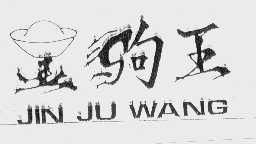 金驹王
JIN JU WANG